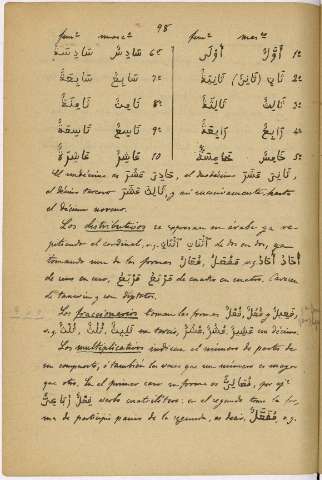 98
fem.º masc.º fem.º masc.º
سَادِسَةٌ سَادِسٌ 6º أُولَى أَوَّلُ 1º
سَابِعَةٌ سَابِعٌ 7º ثَانِيَةٌ ثَانٍ (ثَانِى) 2º
ثَامِنَةٌ ثَامِنٌ 8º ثَالِثَةٌ ثَالِثٌ 3º
تَاسِعَةٌ تَاسِعٌ 9º رَابِعَةٌ رَابِعٌ 4º
عَاشِرَةٌ عَاشِرٌ 10 خَامِسَةٌ خَامِسٌ 5º
El undécimo es حَادِىَ عَشَرَ, el duodécimo ثَانِىَ عَشَرَ,
el décimo tercero ثَالِثَ عَشَرَ, y así sucesivamente hasta
el décimo noveno.
Los distributivos se expresan en árabe ya re-
plicando el cardinal, v.g. de dos en dos, ya
tomando una de las formas مَفْعَلُ, فُعَالُ v.g. أُحَادُ أُحَادُ
de uno en uno, de cuatro en cuatro. Carecen
de tanuin y son diptotos.
Los fraccionarios toman las formas فُعْلٌ, فُعُلٌ y فَعِيلٌ
v.g. ثُلْثٌ, ثُلُثٌ, ثَلِيثٌ un tercio, عُشْرٌ, عُشُرٌ, عَشِيرٌ un décimo.
Los multiplicativos indican el número de partes de
un compuesto, ó también las veces que un número es mayor
que otro. En el primer caso su forma es فُعَالِىٌّ, por ej.º
فِعْلٌ رُبَاعِىٌّ verbo cuatrilítero: en el segundo toma la for-
ma de participio pasivo de la segunda, es decir, مُفَعَّلٌ, v.g.